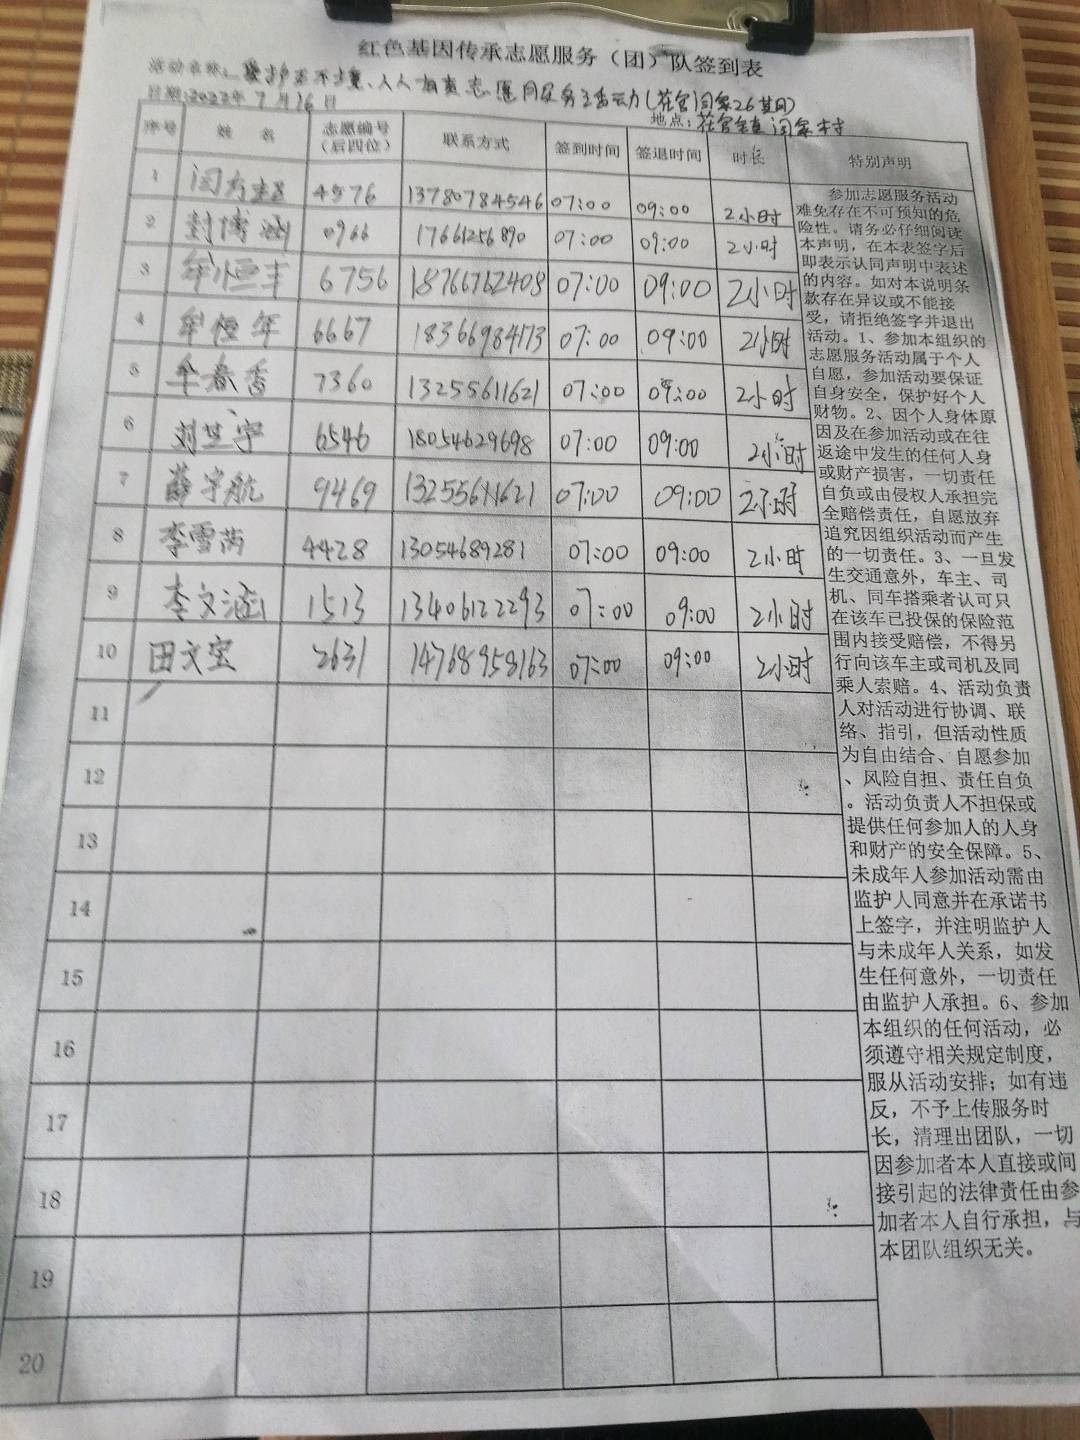 红色基因传承志愿服务（团）队签到表
活动名称：爱护环境、人人有责志愿服务活动（花官闫家26期）
日期：2022年7月16日
地点：花官镇闫家村
序号 姓 名 志愿编号（后四位） 联系方式 签到时间 签退时间 时长 特别声明
1 闫 4576 13780784546 07:00 09:00 2小时
2 封博涵 0966 17661256890 07:00 09:00 2小时
3 牟恒丰 6756 18766762408 07:00 09:00 2小时
4 牟恒年 6667 18366984173 07:00 09:00 2小时
5 牟春香 7360 13255611621 07:00 09:00 2小时
6 刘芷宇 6546 18054629698 07:00 09:00 2小时
7 薛宇航 9469 13255611621 07:00 09:00 2小时
8 李雪 4428 13054689281 07:00 09:00 2小时
9 李文涵 1513 13406122293 07:00 09:00 2小时
10 田文宝 2631 14768958163 07:00 09:00 2小时
11
12
13
14
15
16
17
18
19
20
参加志愿服务活动
难免存在不可预知的危
险性。请务必仔细阅读
本声明，在本表签字后
即表示认同声明中表述
的内容。如对本说明条
款存在异议或不能接
受，请拒绝签字并退出
活动。1、参加本组织的
志愿服务活动属于个人
自愿，参加活动要保证
自身安全，保护好个人
财物。2、因个人身体原
因及在参加活动或在往
返途中发生的任何人身
或财产损害，一切责任
自负或由侵权人承担完
全赔偿责任，自愿放弃
追究因组织活动而产生
的一切责任。3、一旦发
生交通意外，车主、司
机、同车搭乘者认可只
在该车已投保的保险范
围内接受赔偿，不得另
行向该车主或司机及同
乘人索赔。4、活动负责
人对活动进行协调、联
络、指引，但活动性质
为自由结合、自愿参加
、风险自担、责任自负
。活动负责人不担保或
提供任何参加人的人身
和财产的安全保障。5、
未成年人参加活动需由
监护人同意并在承诺书
上签字，并注明监护人
与未成年人关系，如发
生任何意外，一切责任
由监护人承担。6、参加
本组织的任何活动，必
须遵守相关规定制度，
服从活动安排；如有违
反，不予上传服务时
长，清理出团队，一切
因参加者本人直接或间
接引起的法律责任由参
加者本人自行承担，与
本团队组织无关。